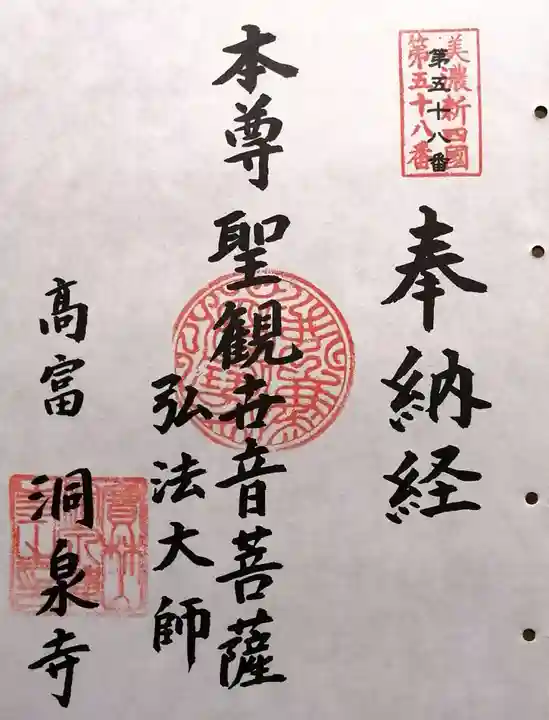 美濃新四國
第五十八番
第五十八番
奉納経
本尊 聖観世音菩薩
弘法大師
高富 洞泉寺